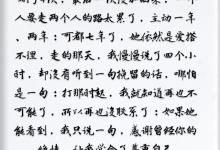 人要走两个人的路太累了,主动一年、
两年;可都七年了,她依然是爱搭
不理,走的那天,我慢慢说了四个小
时,却没有听到一句挽留的话,哪怕
是一句;打那时起,我就知道再也不
可能了,所以再也没联系了;如果她
能看到,我只说一句,感谢曾经你的
让我学会了